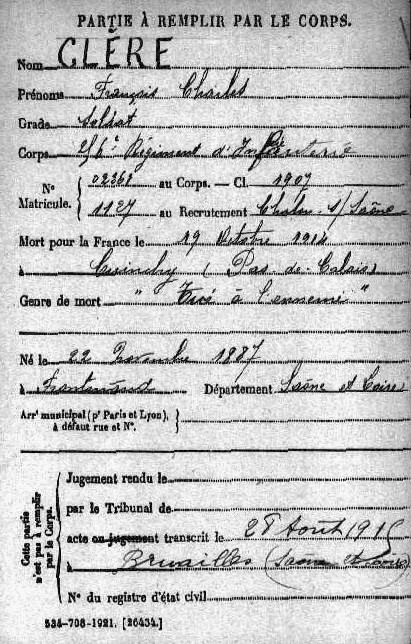 PARTIE À REMPLIR PAR LE CORPS.
Nom CLÈRE
Prénoms François Charles
Grade Soldat
Corps Régiment d'Infanterie
Nº Matricule. 02261 au Corps. — Cl. 1907
1127 au Recrutement Chalon s/ Saône
Mort pour la France le 19 Octobre 1914
à (Pas de Calais)
Genre de mort " Tué à l'ennemi "
Né le 22 Novembre 1887
à Département Saône et Loire
Arrᵗ municipal (pʳ Paris et Lyon),
à défaut rue et Nº.
Cette partie
n'est pas à remplir
par le Corps.
Jugement rendu le
par le Tribunal de
acte ou jugement transcrit le 28 Août 1915
à Bruailles (Saône et Loire)
Nº du registre d'état civil
534-708-1921. [26434.]